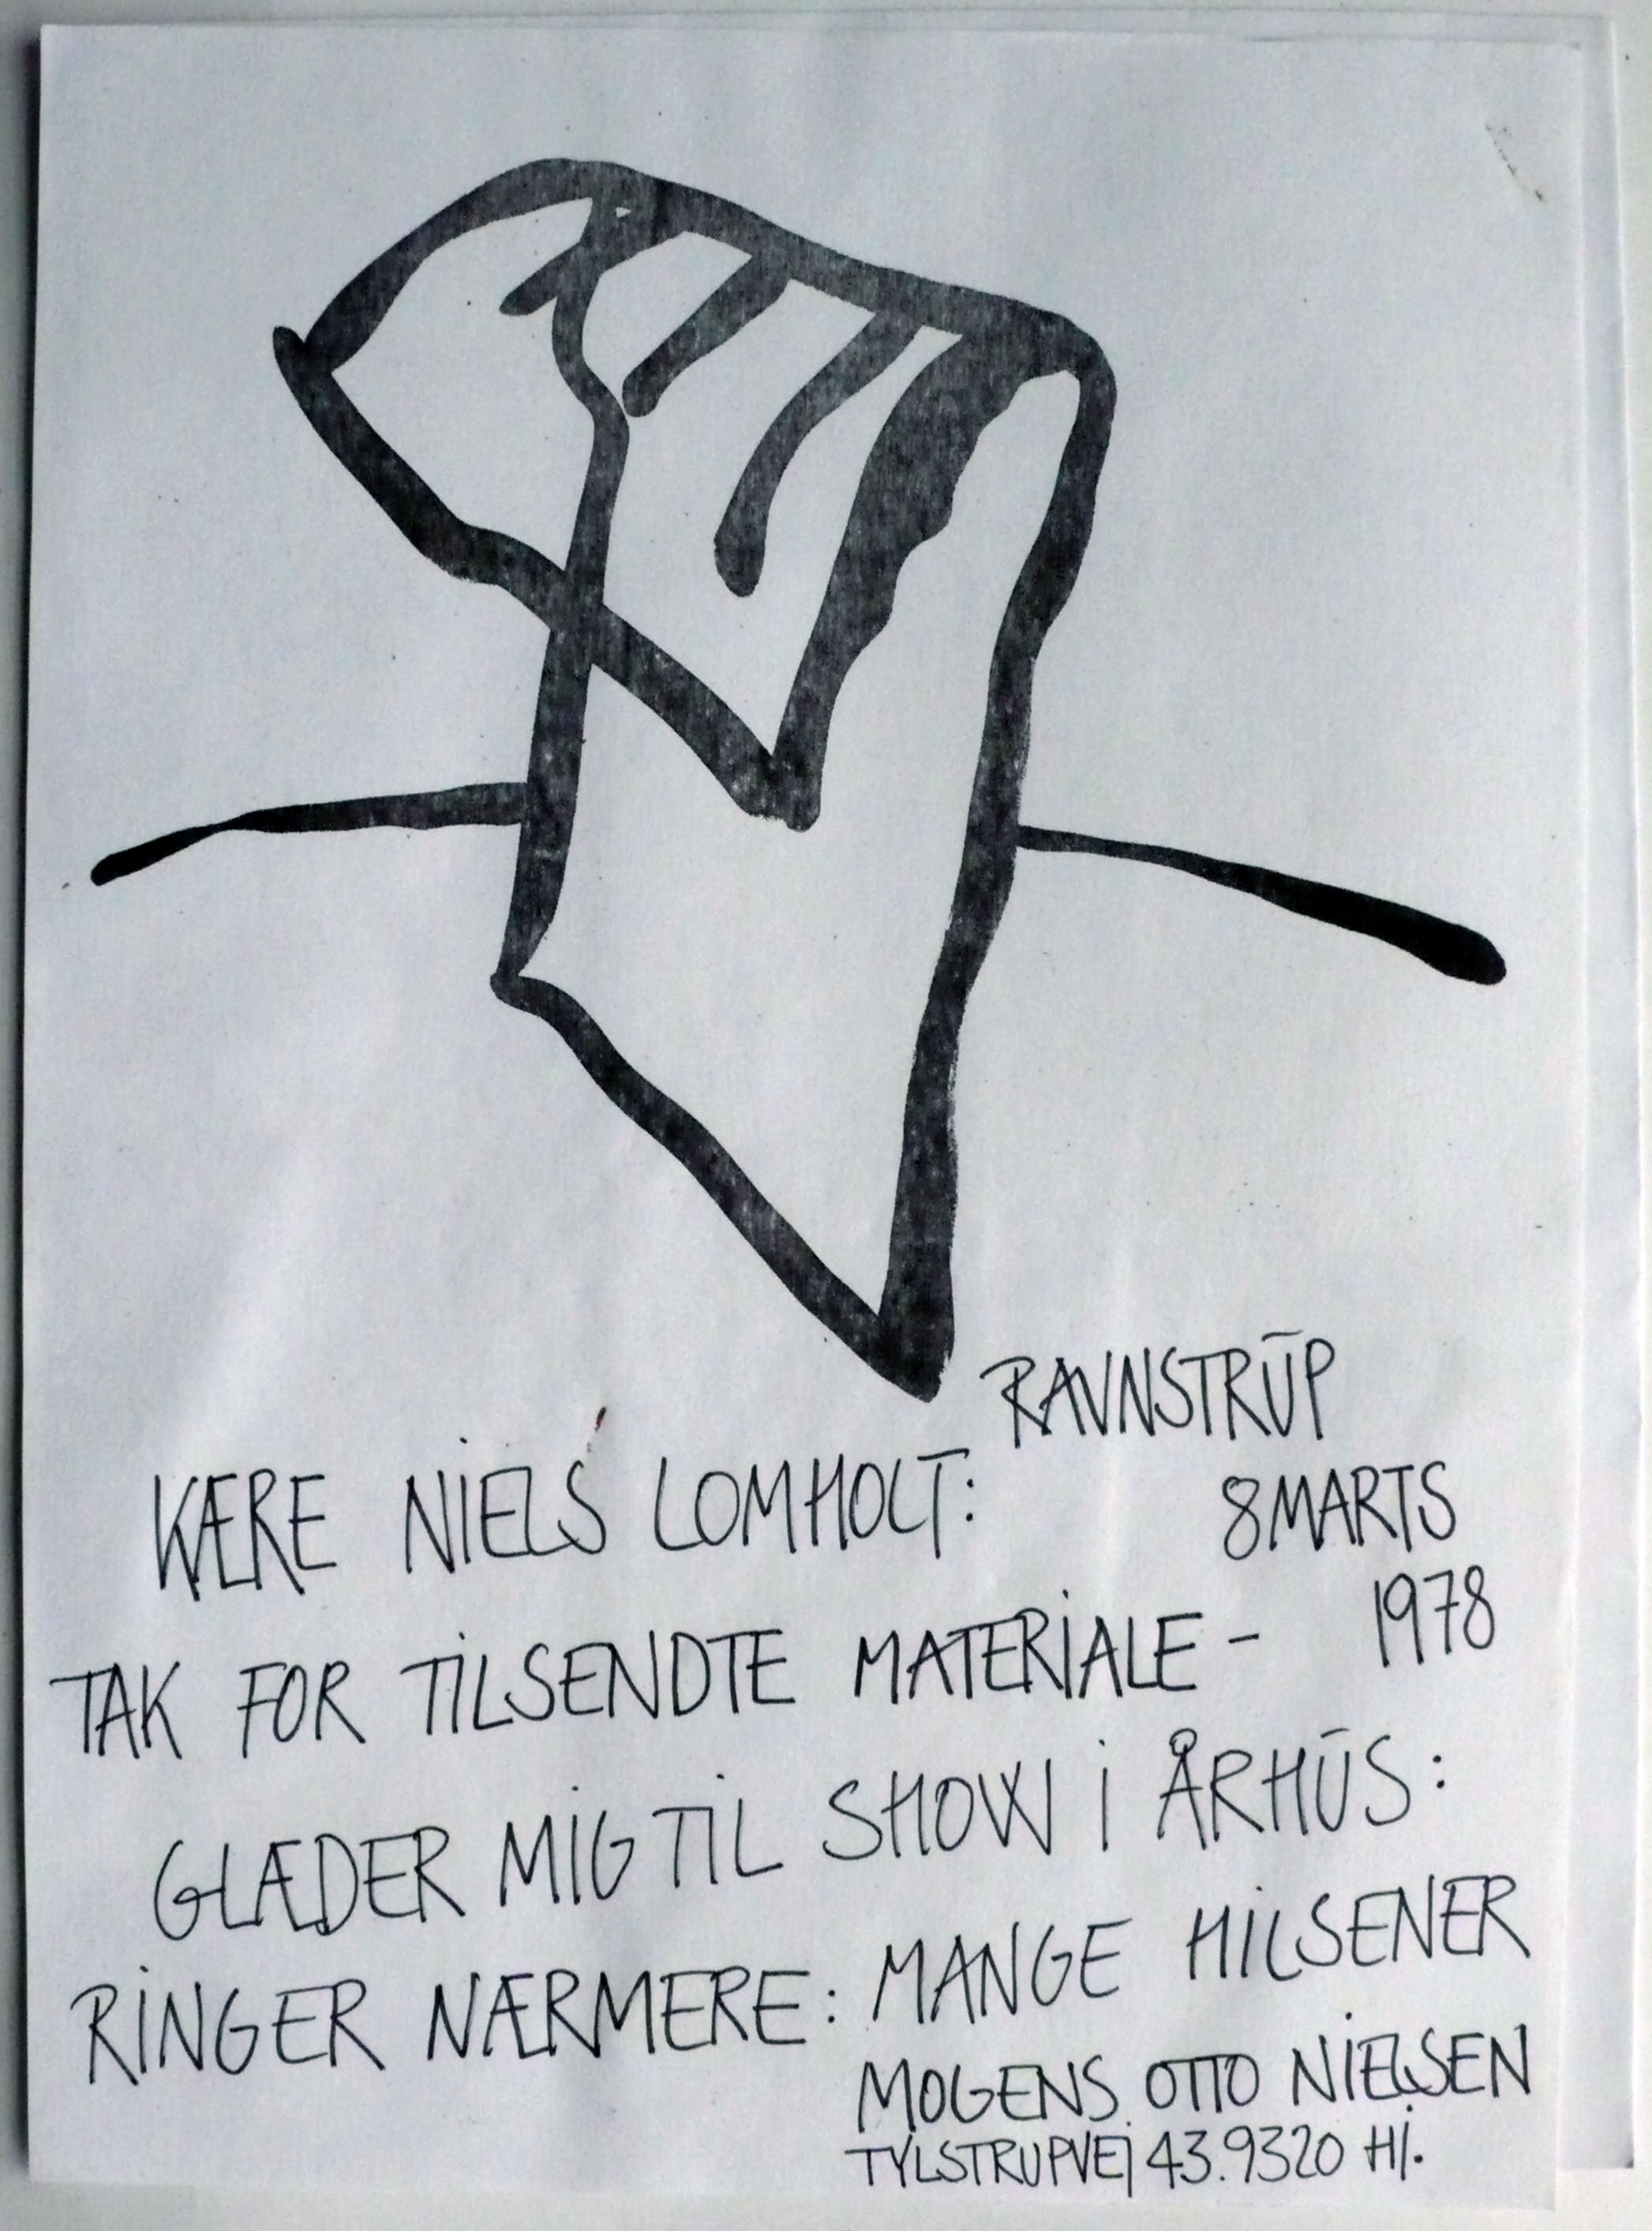 RAVNSTRŪP
KÆRE NIELS LOMHOLT:
8 MARTS
1978
TAK FOR TILSENDTE MATERIALE -
GLÆDER MIG TIL SHOW I ÅRHŪS:
RINGER NÆRMERE: MANGE HILSENER
MOGENS OTTO NIELSEN
TYLSTRUPVEJ 43.9320 Hj.